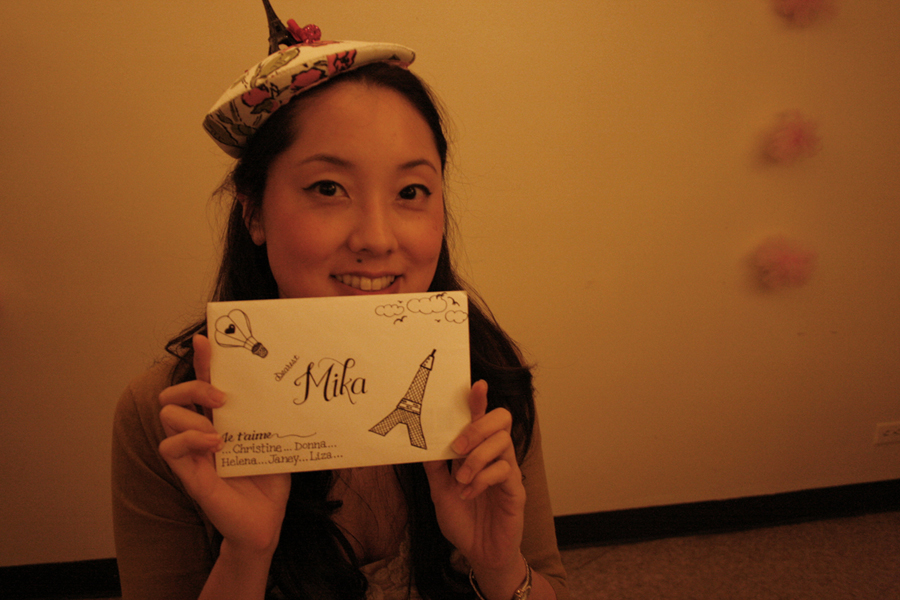 Dearest
Mika
Je t'aime
...Christine...Donna...
Helena...Janey...Liza...